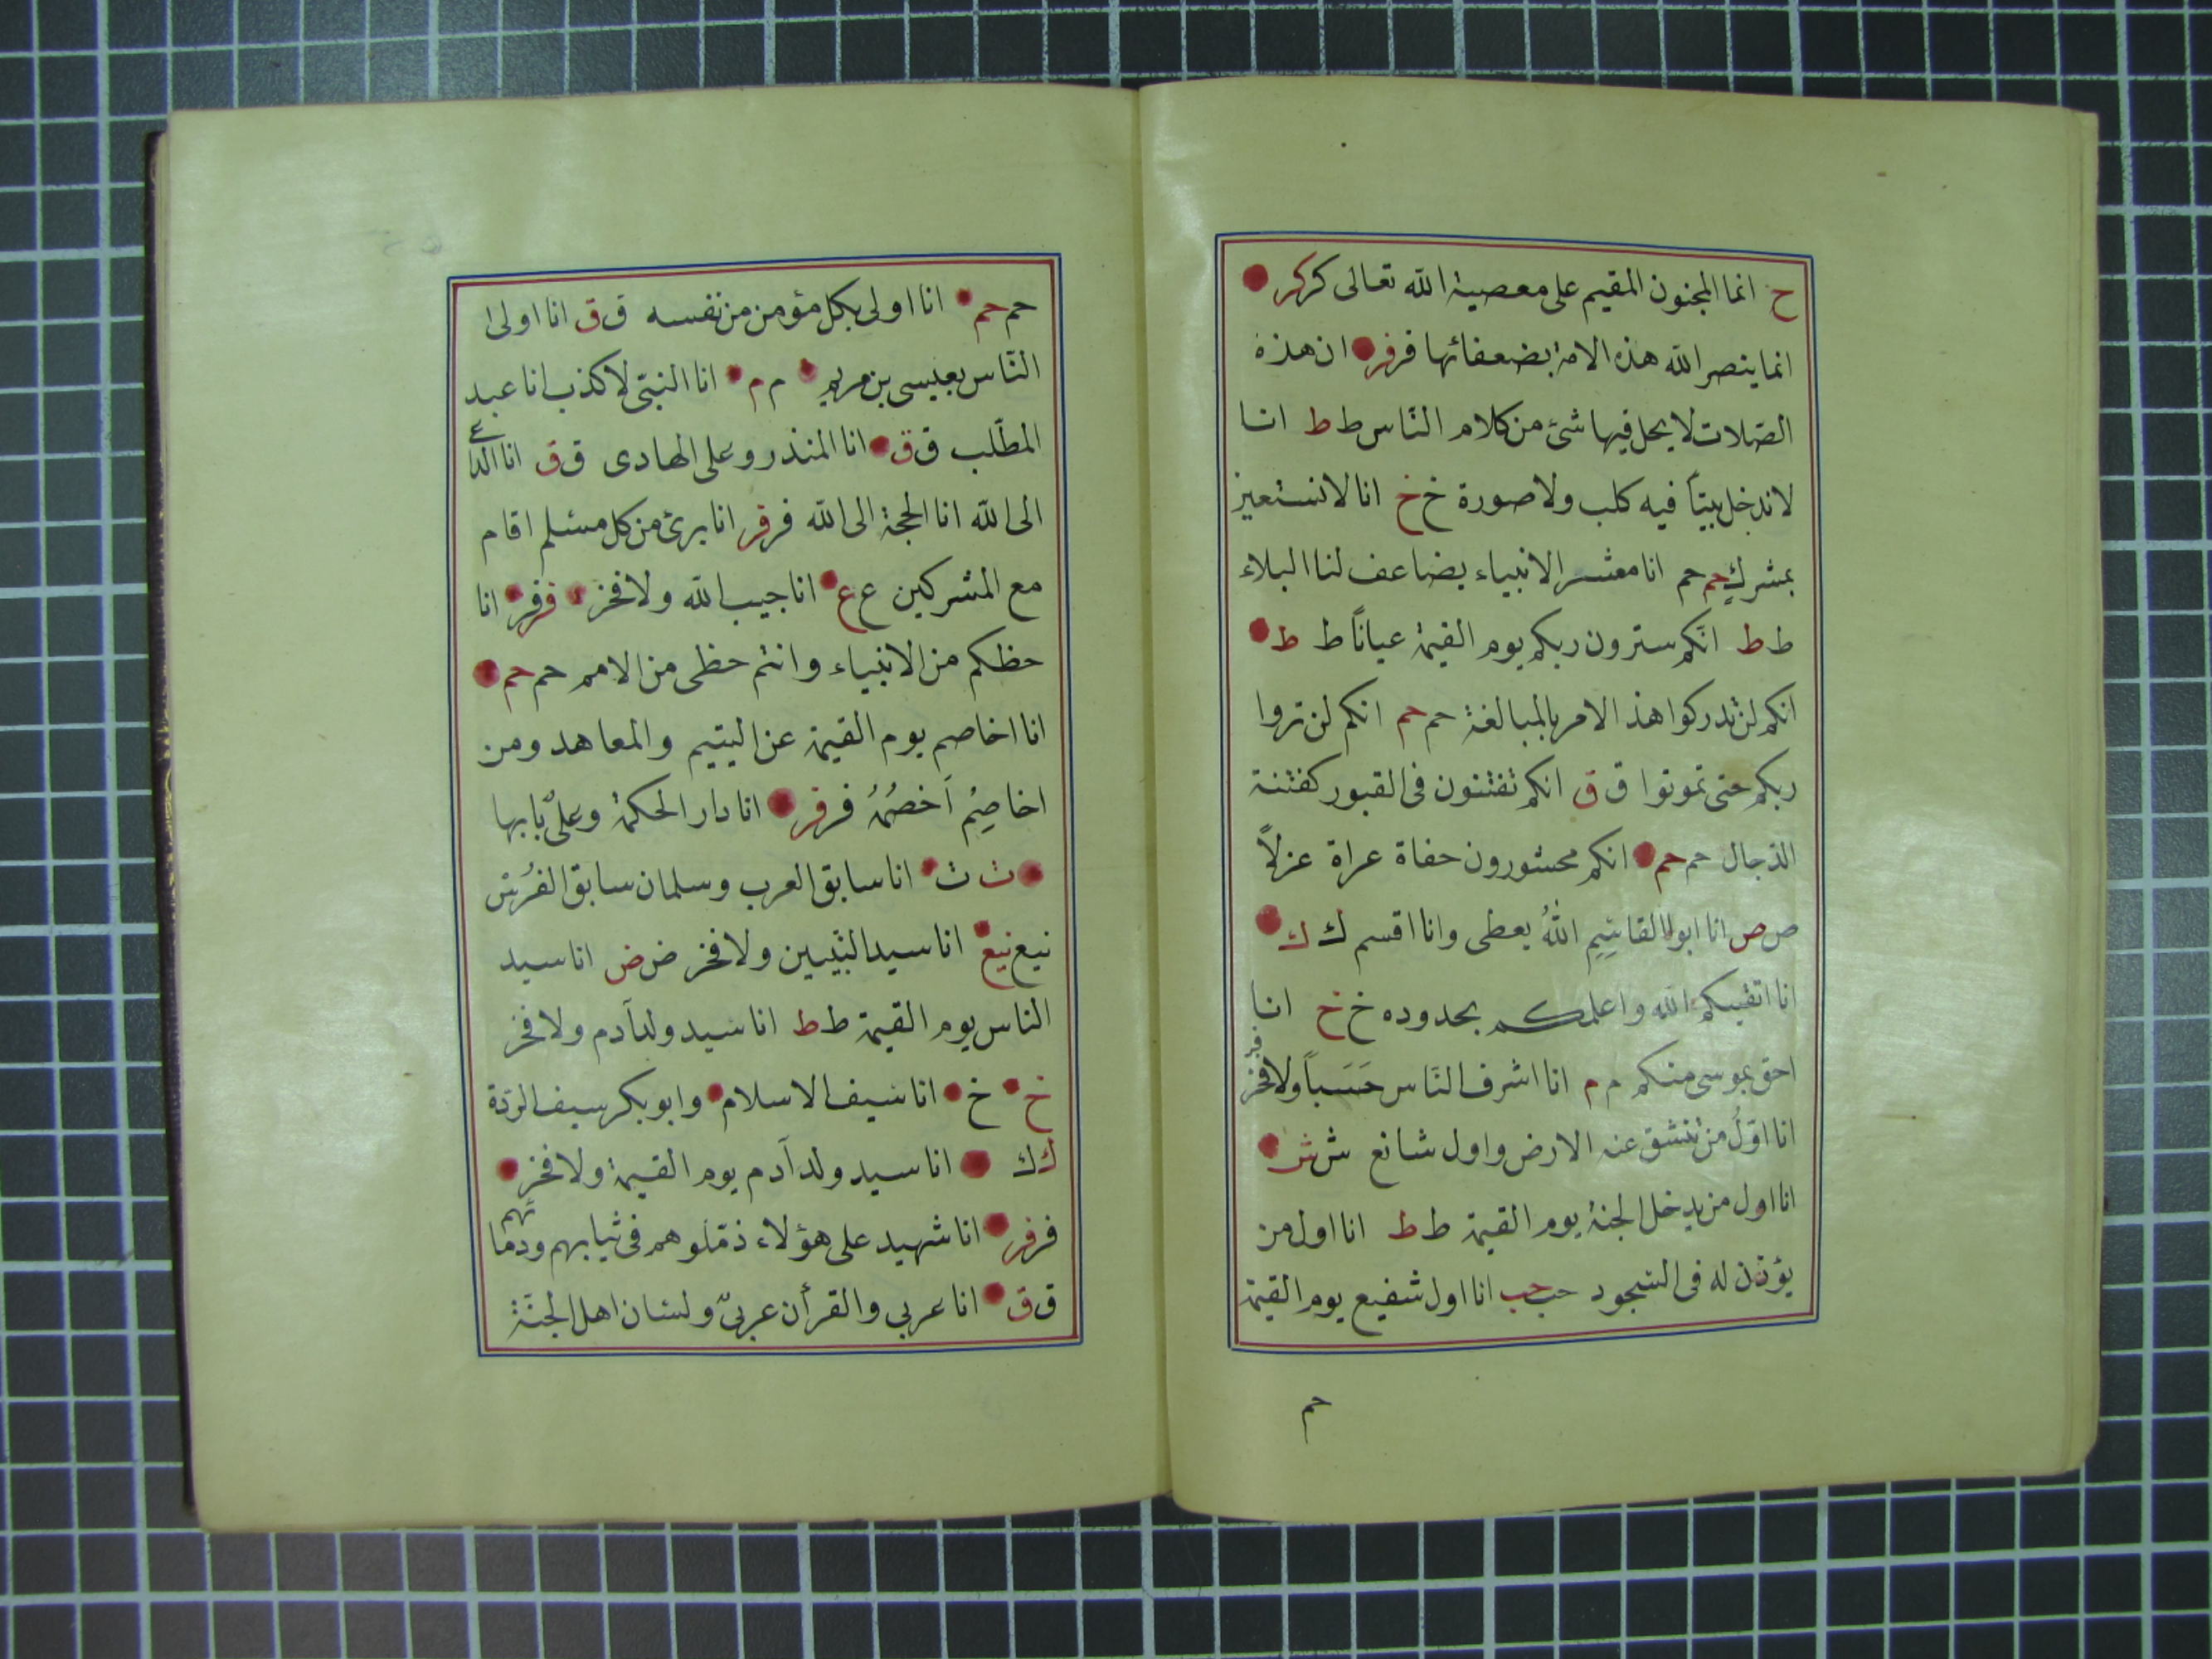 ح انما المجنون المقيم على معصية الله تعالى كر كر
انما ينصر الله هذه الامة بضعفائها فر فر ان هذه
الصلات لا يحل فيها شئ من كلام النّاس ط ط انا
لا ندخل بيتاً فيه كلب ولا صورة خ خ انا لا نستعين
بمشرك حم حم انا معشر الانبياء يضاعف لنا البلاء
ط ط انّكم سترون ربكم يوم القيمة عياناً ط ط
انكم لن تدركوا هذ الامر بالمبالغة حم حم انكم لن تروا
ربكم حتى تموتوا ق ق انكم تفتنون فى القبور كفتنة
الذجال حم حم انكم محشورون حفاة عراة عزلاً
ص ص انا ابو القاسِمِ اللهُ يعطى وانا اقسم ك ك
انا اتقيكم الله واعلمكم بحدوده خ خ انا
احق بموسى منكم م م انا اشرف النّاس حَسَباً ولا فخر فر
انا اوّلُ من تنشق عنه الارض واول شافع ش ش
انا اول من يدخل الجنة يوم القيمة ط ط انا اول من
يؤذن له فى السجود حب حب انا اول شفيع يوم القيمة
حم
حم حم انا اولى بكل مؤمن من نفسه ق ق انا اولى
النّاس بعيسى بن مريم م م انا النبىّ لا كذب انا عبد
المطّلب ق ق انا المنذر وعلى الهادى ق ق انا الداعى
الى الله انا الحجة الى الله فر فر انا برئ من كل مسلم اقام
مع المشركين ع ع انا حبيب الله ولا فخر فر فر انا
حظكم من الانبياء وانتم حظى من الامم حم حم
انا اخاصم يوم القيمة عن اليتيم والمعاهد ومن
اخاصِمُ اَخصُمُهُ فر فر انا دار الحكمة وعلىّ بابها
ت ت انا سابق العرب وسلمان سابق الفُرْس
نيع نيع انا سيد النّبيين ولا فخر ض ض انا سيد
الناس يوم القيمة ط ط انا سيد ولد آدم ولا فخر
خ خ انا سيف الاسلام وابو بكر سيف الردّة
ك ك انا سيد ولد آدم يوم القيمة ولا فخر
فر فر انا شهيد على هؤلاء زمّلوهم فى ثيابهم ودمائهم
ق ق انا عربى والقرأن عربىّ ولسان اهل الجنّة